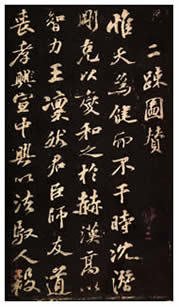 二疎圖贊
惟天為健而不干時沈潛
剛克以燮和之於赫漢高以
智力王凛然君臣師友道
喪孝興宣中興以法馭人殺